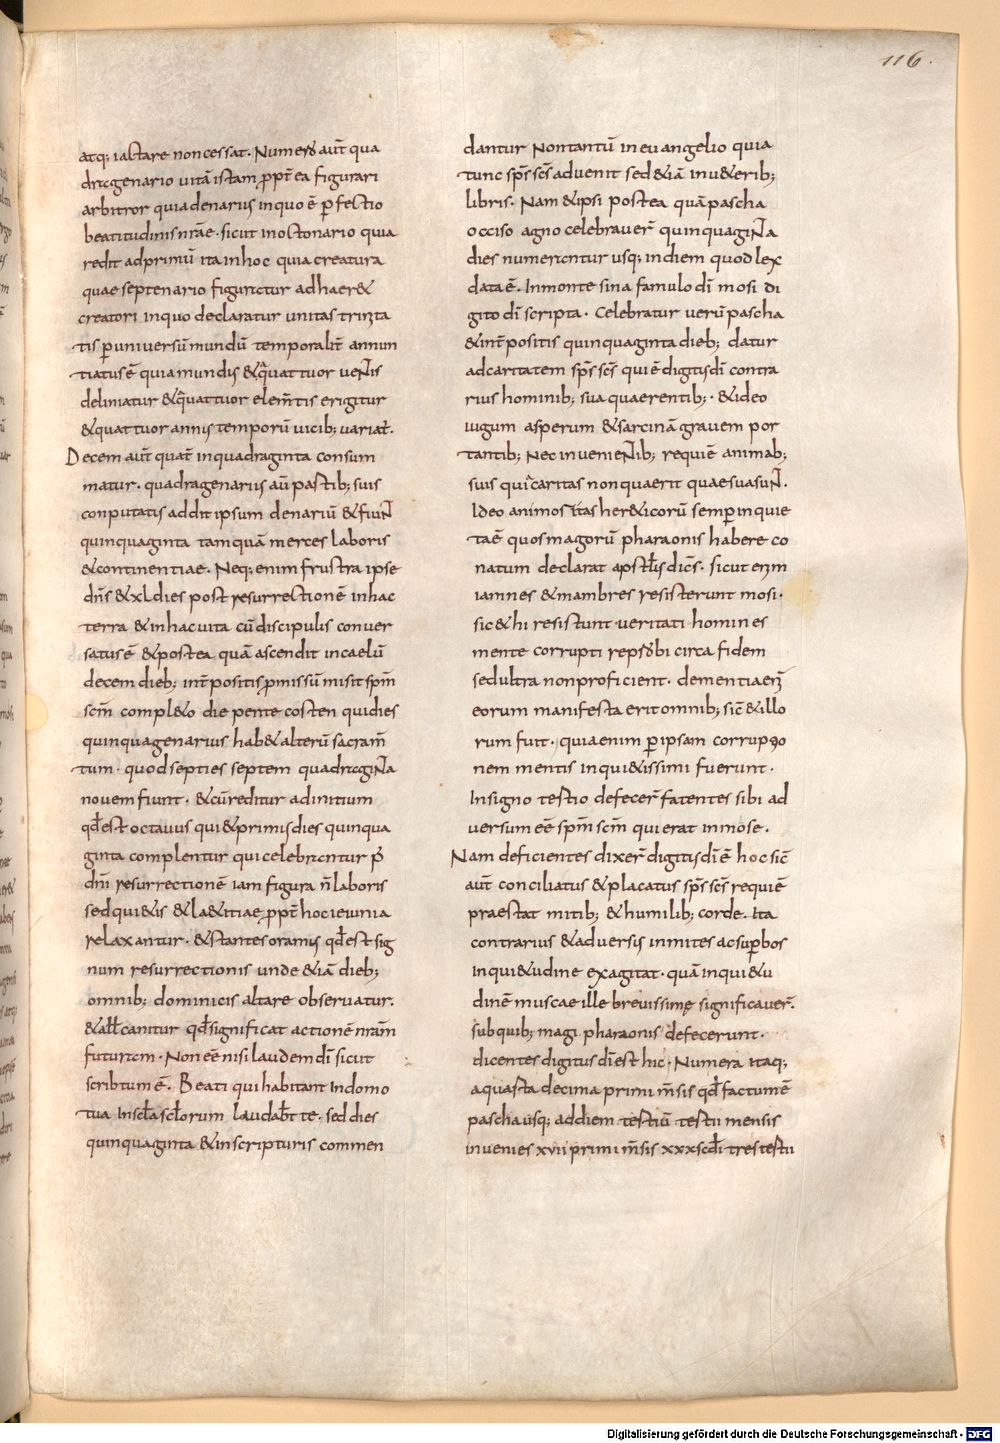 116.
atq; iactare non cessat. Numero aut̄ qua
dragenario uitā istam ꝓpt̄ ea figurari
arbitror quia denarius in quo ē ꝑfectio
beatitudinis nrāe. sicut in octonario quia
redit ad primū ita in hoc quia creatura
quae septenario figuratur adhaer&
creatori in quo declaratur unitas trinita
tis ꝑ uniuersū mundū temporalit̄ annun
tiatus ē quia mundus & quattuor uentis
deliniatur & quattuor elem̄tis erigitur
& quattuor annis temporū uicib; uariat̄.
Decem aut̄ quat̄ in quadraginta consum
matur. quadragenarius au̅ partib; suis
conputatis addit ipsum denariū & fiunt
quinquaginta tamquā merces laboris
& continentiae. Neq; enim frustra ipse
dn̄s & xl dies post resurrectionē in hac
terra & in hac uita cū discipulis conuer
satus ē & postea quā ascendit in caelū
decem dieb; int̄positis ꝓmissū misit spm̄
scm̄ compl&o die pente costen qui dies
quinquagenarius hab& alterū sacram̄
tum. quod septies septem quadraginta
nouem fiunt. & cū reditur ad initium
qđ est octauus qui & primus dies quinqua
ginta complentur qui celebrantur p̄
dn̄i resurrectionē iam figura n̄ laboris
sed qui&is & la&itiae ꝓpt̄ hoc ieiunia
relaxantur. & stantes oramus qđ est sig
num resurrectionis unde & iā dieb;
omnib; dominicis altare obseruatur.
& aƚƚ canitur qđ significat actionē nrām
futuram. Non eē nisi laudem dī sicut
scribtum ē. Beati qui habitant in domo
tua in scƚa scƚorum laudabt̄ te. sed dies
quinquaginta & in scripturis commen
dantur Non tantū in euangelio quia
tunc sps̄ scs̄ aduenit sed & iā in u&erib;
libris. Nam & ipsi postea quā pascha
occiso agno celebrauer̄ quinquaginta
dies numerantur usq; in diem quo lex
data ē. In monte sina famulo dī mosi di
gito dī scripta. Celebratur uerū pascha
& int̄positis quinquaginta dieb; datur
ad caritatem sps̄ scs̄ qui ē digitus dī contra
rius hominib; sua quaerentib;. & ideo
iugum asperum & sarcinā grauem por
tantib; Nec inuenientib; requiē animab;
suis quia caritas non quaerit quae sua sunt.
Ideo animositas her&icorū semꝑ inquie
ta ē quos magorū pharaonis habere co
natum declarat apstƚs dicēs. sicut enim
iamnes & mambres resisterunt mosi.
sic & hi resistunt ueritati homines
mente corrupti reprobi circa fidem
sed ultra non proficient. dementia enī
eorum manifesta erit omnib; sic̄ & illo
rum fuit. quia enim ꝑ ipsam corruptio
nem mentis inqui&issimi fuerunt.
In signo tertio defecer̄ fatentes sibi ad
uersum eē spm̄ scm̄ qui erat in mose.
Nam deficientes dixer̄ digitus dī ē hoc sic̄
aut̄ conciliatus & placatus sps̄ scs̄ requiē
praestat mitib; & humilib; corde. Ita
contrarius & aduersus inmites ac suꝑbos
inqui&udine exagitat. quā inqui&u
dinē muscae ille breuissimę significauer̄.
sub quib; magi pharaonis defecerunt.
dicentes digitus dī est hic. Numera itaq;
a quarta decima primi m̄sis qđ factum ē
pascha usq; ad diem tertiū tertii mensis
inuenies xvii primi m̄sis xxx scđi tres tertii
Digitalisierung gefördert durch die Deutsche Forschungsgemeinschaft - DFG